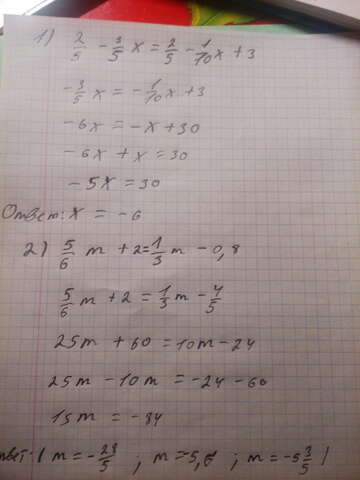 1) 2/5 - 3/5 x = 2/5 - 1/10 x + 3
-3/5 x = -1/10 x + 3
-6x = -x + 30
-6x + x = 30
-5x = 30
Ответ: x = -6
2) 5/6 m + 2 = 1/3 m - 0,8
5/6 m + 2 = 1/3 m - 4/5
25m + 60 = 10m - 24
25m - 10m = -24 - 60
15m = -84
вет: ( m = -28/5 ; m = 5,6 ; m = -5 3/5 )